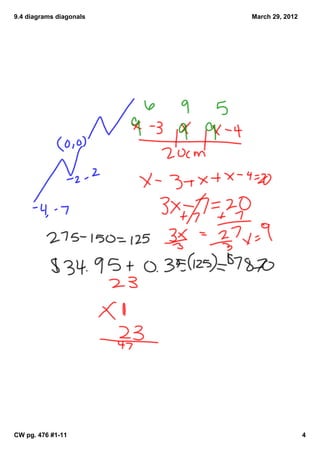 9.4 diagrams diagonals March 29, 2012
6 9 5
x-3 x x-4
(0,0) 20cm
-2 -2
x-3+x+x-4=20
-4, -7
3x-7=20
+7 +7
275-150=125 3x = 27 x=9
3 3
$34.95+0.35(125)=$78.70
23
x1
23
47
CW pg. 476 #1-11 4